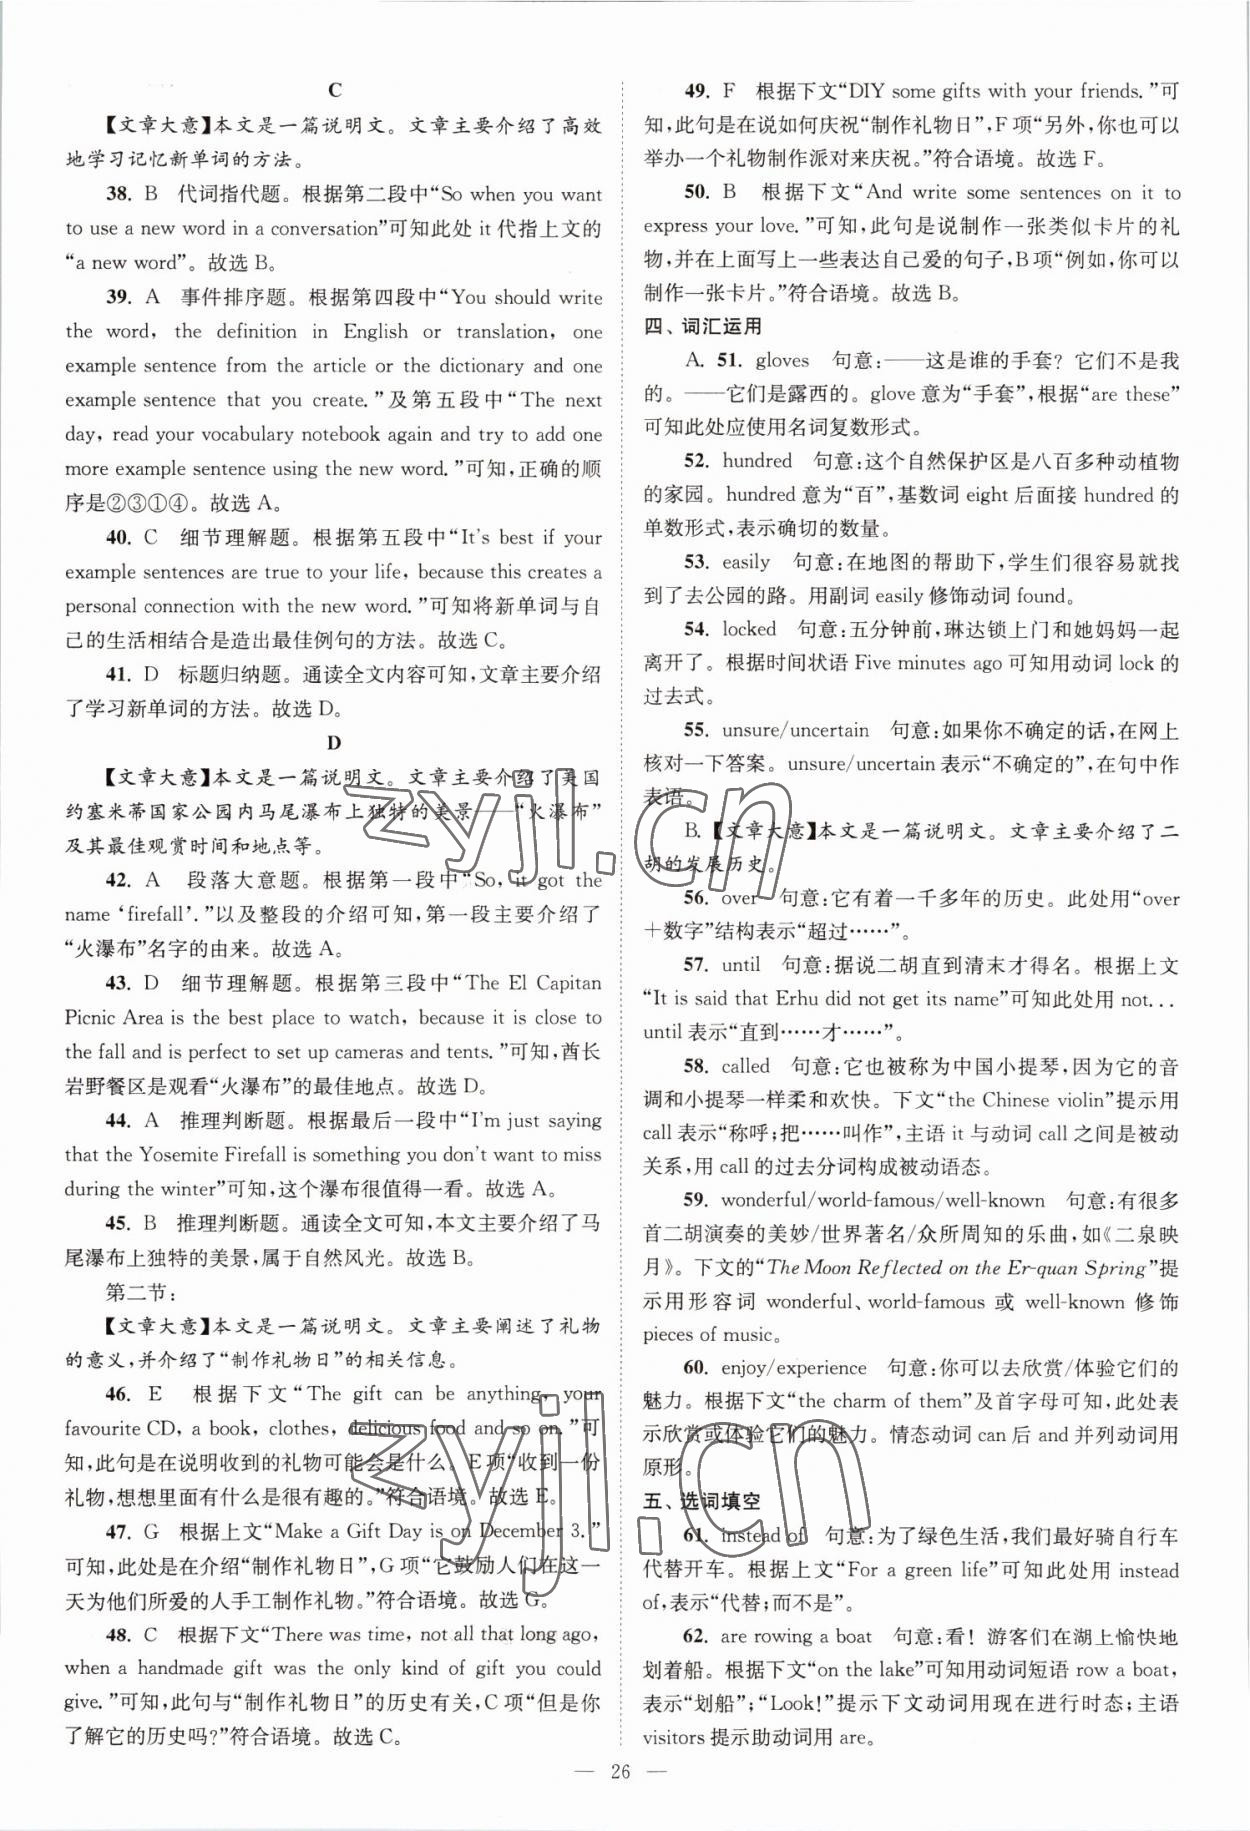 C
【文章大意】本文是一篇说明文。文章主要介绍了高效
地学习记忆新单词的方法。
38. B 代词指代题。根据第二段中“So when you want
to use a new word in a conversation”可知此处 it 代指上文的
“a new word”。故选 B。
39. A 事件排序题。根据第四段中“You should write
the word, the definition in English or translation, one
example sentence from the article or the dictionary and one
example sentence that you create.”及第五段中“The next
day, read your vocabulary notebook again and try to add one
more example sentence using the new word.”可知,正确的顺
序是②③①④。故选 A。
40. C 细节理解题。根据第五段中“It's best if your
example sentences are true to your life, because this creates a
personal connection with the new word.”可知将新单词与自
己的生活相结合是造出最佳例句的方法。故选 C。
41. D 标题归纳题。通读全文内容可知,文章主要介绍
了学习新单词的方法。故选 D。
D
【文章大意】本文是一篇说明文。文章主要介绍了美国
约塞米蒂国家公园内马尾瀑布上独特的美景——“火瀑布”
及其最佳观赏时间和地点等。
42. A 段落大意题。根据第一段中“So, it got the
name ‘firefall’.”以及整段的介绍可知,第一段主要介绍了
“火瀑布”名字的由来。故选 A。
43. D 细节理解题。根据第三段中“The El Capitan
Picnic Area is the best place to watch, because it is close to
the fall and is perfect to set up cameras and tents.”可知,酋长
岩野餐区是观看“火瀑布”的最佳地点。故选 D。
44. A 推理判断题。根据最后一段中“I'm just saying
that the Yosemite Firefall is something you don't want to miss
during the winter”可知,这个瀑布很值得一看。故选 A。
45. B 推理判断题。通读全文可知,本文主要介绍了马
尾瀑布上独特的美景,属于自然风光。故选 B。
第二节:
【文章大意】本文是一篇说明文。文章主要阐述了礼物
的意义,并介绍了“制作礼物日”的相关信息。
46. E 根据下文“The gift can be anything, your
favourite CD, a book, clothes, delicious food and so on.”可
知,此句是在说明收到的礼物可能会是什么。E 项“收到一份
礼物,想想里面有什么是很有趣的。”符合语境。故选 E。
47. G 根据上文“Make a Gift Day is on December 3.”
可知,此处是在介绍“制作礼物日”,G 项“它鼓励人们在这一
天为他们所爱的人手工制作礼物。”符合语境。故选 G。
48. C 根据下文“There was time, not all that long ago,
when a handmade gift was the only kind of gift you could
give.”可知,此句与“制作礼物日”的历史有关,C 项“但是你
了解它的历史吗?”符合语境。故选 C。
49. F 根据下文“DIY some gifts with your friends.”可
知,此句是在说如何庆祝“制作礼物日”,F 项“另外,你也可以
举办一个礼物制作派对来庆祝。”符合语境。故选 F。
50. B 根据下文“And write some sentences on it to
express your love.”可知,此句是说制作一张类似卡片的礼
物,并在上面写上一些表达自己爱的句子,B 项“例如,你可以
制作一张卡片。”符合语境。故选 B。
四、词汇运用
A. 51. gloves 句意:——这是谁的手套? 它们不是我
的。——它们是露西的。glove 意为“手套”,根据“are these”
可知此处应使用名词复数形式。
52. hundred 句意:这个自然保护区是八百多种动植物
的家园。hundred 意为“百”,基数词 eight 后面接 hundred 的
单数形式,表示确切的数量。
53. easily 句意:在地图的帮助下,学生们很容易就找
到了去公园的路。用副词 easily 修饰动词 found。
54. locked 句意:五分钟前,琳达锁上门和她妈妈一起
离开了。根据时间状语 Five minutes ago 可知用动词 lock 的
过去式。
55. unsure/uncertain 句意:如果你不确定的话,在网上
核对一下答案。unsure/uncertain 表示“不确定的”,在句中作
表语。
B.【文章大意】本文是一篇说明文。文章主要介绍了二
胡的发展历史。
56. over 句意:它有着一千多年的历史。此处用“over
+数字”结构表示“超过……”。
57. until 句意:据说二胡直到清末才得名。根据上文
“It is said that Erhu did not get its name”可知此处用 not...
until 表示“直到……才……”。
58. called 句意:它也被称为中国小提琴,因为它的音
调和小提琴一样柔和欢快。下文“the Chinese violin”提示用
call 表示“称呼;把……叫作”,主语 it 与动词 call 之间是被动
关系,用 call 的过去分词构成被动语态。
59. wonderful/world-famous/well-known 句意:有很多
首二胡演奏的美妙/世界著名/众所周知的乐曲,如《二泉映
月》。下文的“The Moon Reflected on the Er-quan Spring”提
示用形容词 wonderful、world-famous 或 well-known 修饰
pieces of music。
60. enjoy/experience 句意:你可以去欣赏/体验它们的
魅力。根据下文“the charm of them”及首字母可知,此处表
示欣赏或体验它们的魅力。情态动词 can 后 and 并列动词用
原形。
五、选词填空
61. instead of 句意:为了绿色生活,我们最好骑自行车
代替开车。根据上文“For a green life”可知此处用 instead
of,表示“代替;而不是”。
62. are rowing a boat 句意:看! 游客们在湖上愉快地
划着船。根据下文“on the lake”可知用动词短语 row a boat,
表示“划船”;“Look!”提示下文动词用现在进行时态;主语
visitors 提示助动词用 are。
— 26 —
zyjl.cn
zyjl.cn